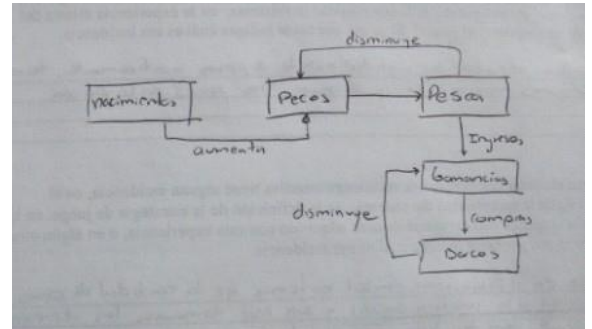 disminuye
nacimientos
Peces
Pesca
aumenta
Ingresos
Ganancias
disminuye
compras
Barcos